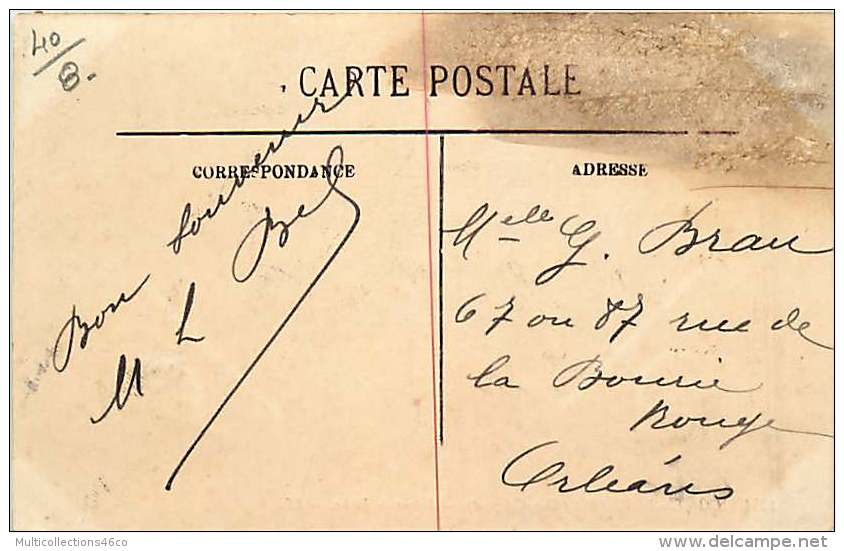 40
8.
CARTE POSTALE
CORRESPONDANCE
ADRESSE
Bon souvenir
M L Bel
Melle G. Brau
67 ou 87 rue de
la Bourie
Rouge
Orléans
Multicollections46co
delcampe.net